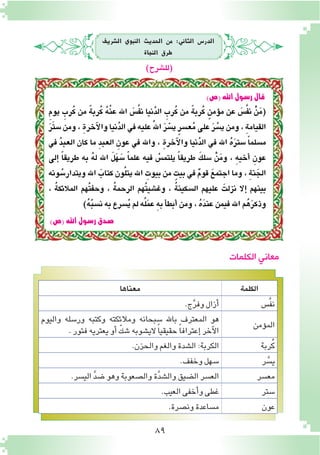 الدرس الثاني: من الحديث النبوي الشريف
طرق النجاة
(للشرح)
قال رسول الله (ص)
(مَّنْ نفَّسَ عن مؤمنٍ كُربةً من كُربِ الدُّنيا نفَّسَ الله عنَّهُ كُربةً من كُربِ يوم
القيامةِ ، ومن يسَّرَ على مُعسِرٍ يسَّرَ اللهُ عليهِ في الدُّنيا والآخرةِ ، ومن ستَرَ
مسلماً سترَهُ الله في الدُّنيا والآخرةِ ، والله في عونِ العبدِ ما كان العبدُ في
عونِ أخيهِ ، ومَن سلكَ طريقاً يلتمسُ فيه علماً سَهَّلَ الله لهُ به طريقاً إلى
الجَنَّةِ ، وما اجتمعَ قومٌ في بيتٍ من بيوتِ الله يتلُون كتابَ الله ويتدارسُونه
بينهم إلا نزلتْ عليهم السكينَةُ ، وغشيتْهم الرحمةُ ، وحفتْهم الملائكةُ ،
وذكرَهُم الله فيمن عندَهُ ، ومن أبطأ بِهِ عملُه لم يُسرع به نسبُهُ)
صدق رسول الله (ص)
معاني الكلمات
الكلمة معناها
نفَّس أزال وفرَّج.
المؤمن هو المعترف بالله سبحانه وملائكته وكتبه ورسله واليوم
الآخر إعترافاً حقيقياً لايشوبه شكٌ أو يعتريه فتور .
كُربة الكربة: الشدة والغم والحزن.
يسَّر سهل وخفف.
معسر العسر الضيق والشدَّة والصعوبة وهو ضدَّ اليسر.
ستر غطى وأخفى العيب.
عون مساعدة ونصرة.
٨٩